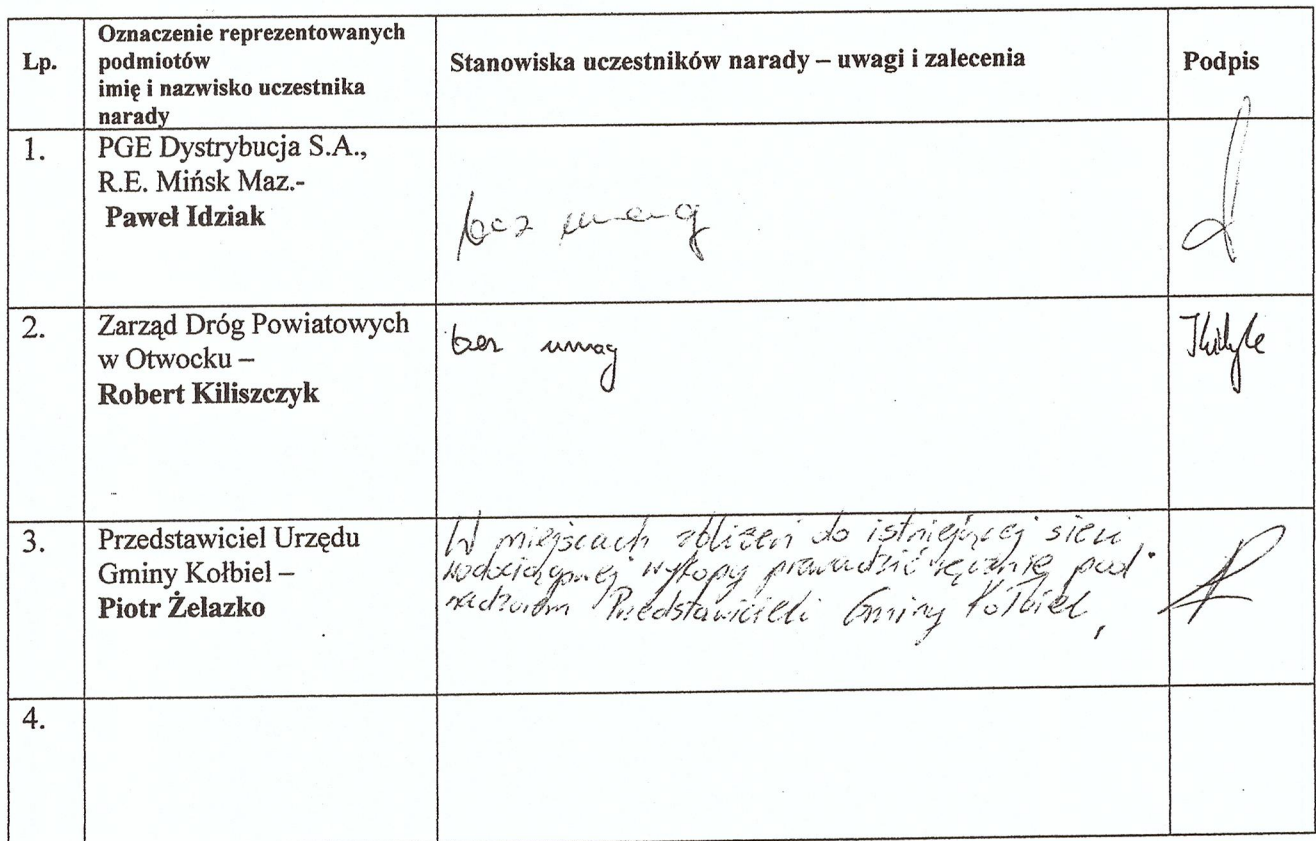 Lp.
Oznaczenie reprezentowanych
podmiotów
imię i nazwisko uczestnika
narady
Stanowiska uczestników narady – uwagi i zalecenia
Podpis
1.
PGE Dystrybucja S.A.,
R.E. Mińsk Maz.-
Paweł Idziak
bez uwag
2.
Zarząd Dróg Powiatowych
w Otwocku –
Robert Kiliszczyk
bez uwag
3.
Przedstawiciel Urzędu
Gminy Kołbiel –
Piotr Żelazko
W miejscach zbliżeń do istniejącej sieci
wodociągowej wykopy prowadzić ręcznie pod
nadzorem Przedstawicieli Gminy Kołbiel,
4.